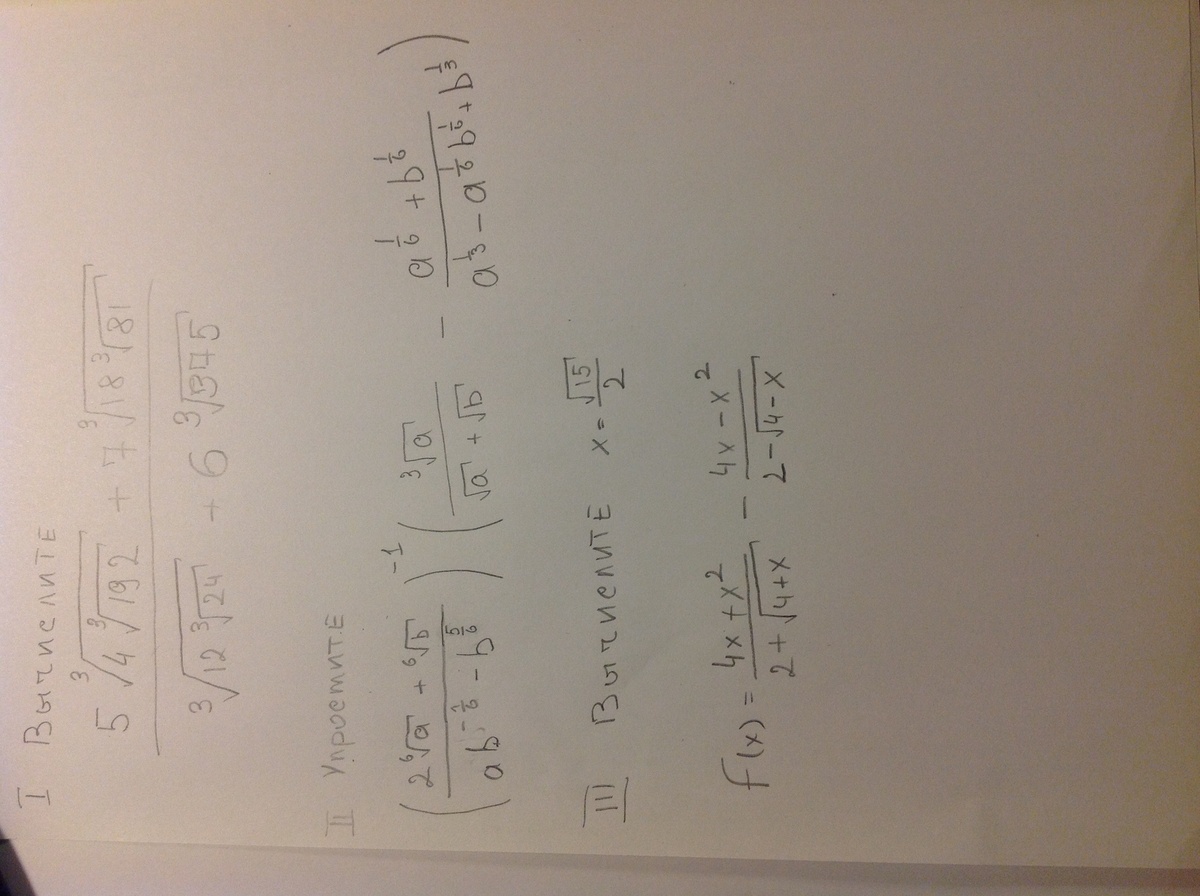 I Вычислите
(5∛(4∛192) + 7∛(18∛81)) / (∛(12∛24) + 6∛375)
II Упростите
((2⁶√a + ⁶√b) / (ab^(-1/6) - b^(5/6)))^(-1) (∛a / (√a + √b) - (a^(1/6) + b^(1/6)) / (a^(1/3) - a^(1/6)b^(1/6) + b^(1/3)))
III Вычислите x = √15/2
f(x) = (4x + x²) / (2 + √(4+x)) - (4x - x²) / (2 - √(4-x))